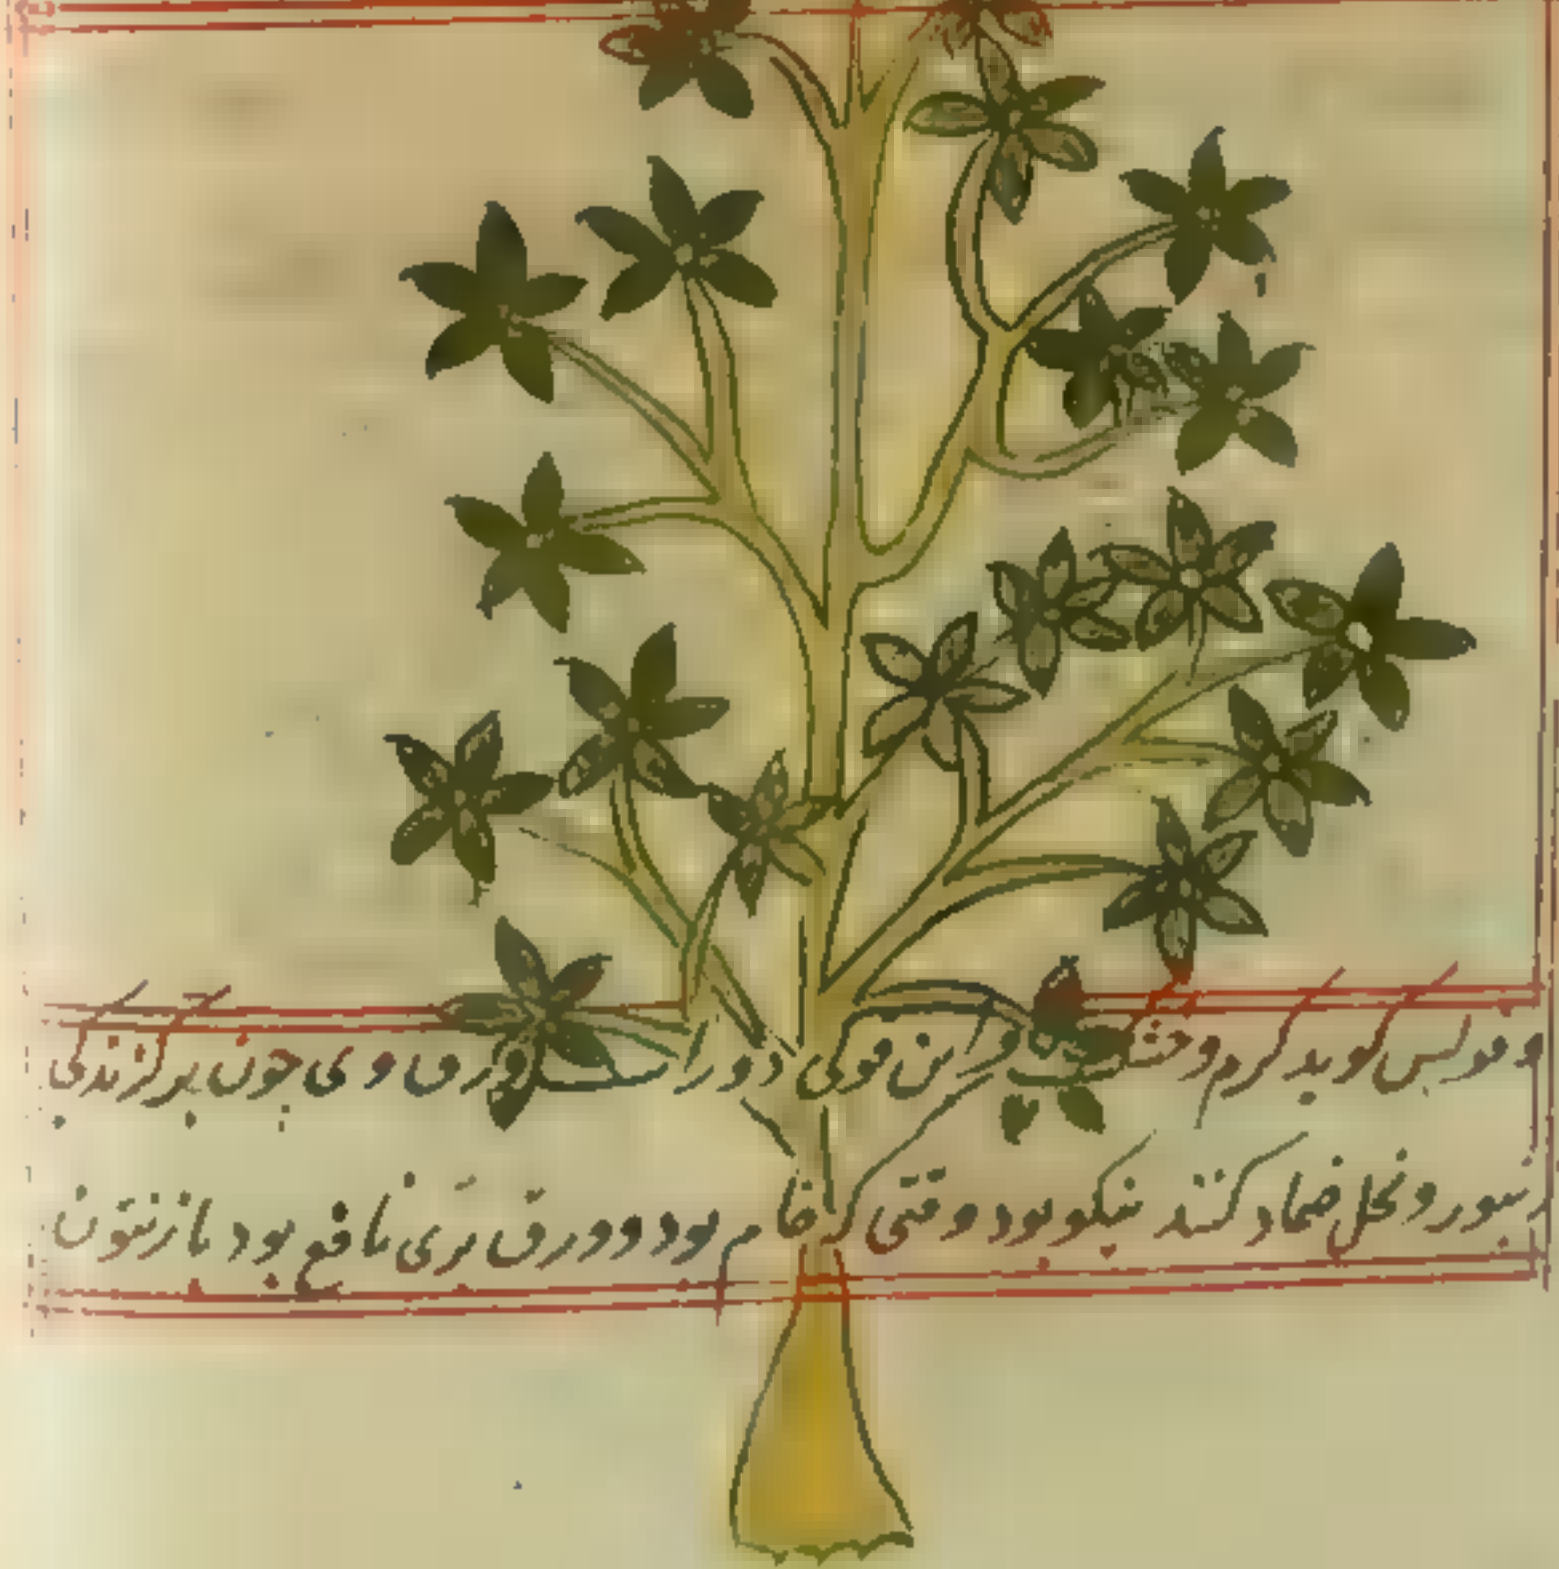 و فولس کوید کرم و خشک و این قوی دور است ورق وی چون بر کزندکی
زنبور و نحل ضماد کنند نیکو بود وقتی کی خام بود و ورق تری نافع بود ما زنتون